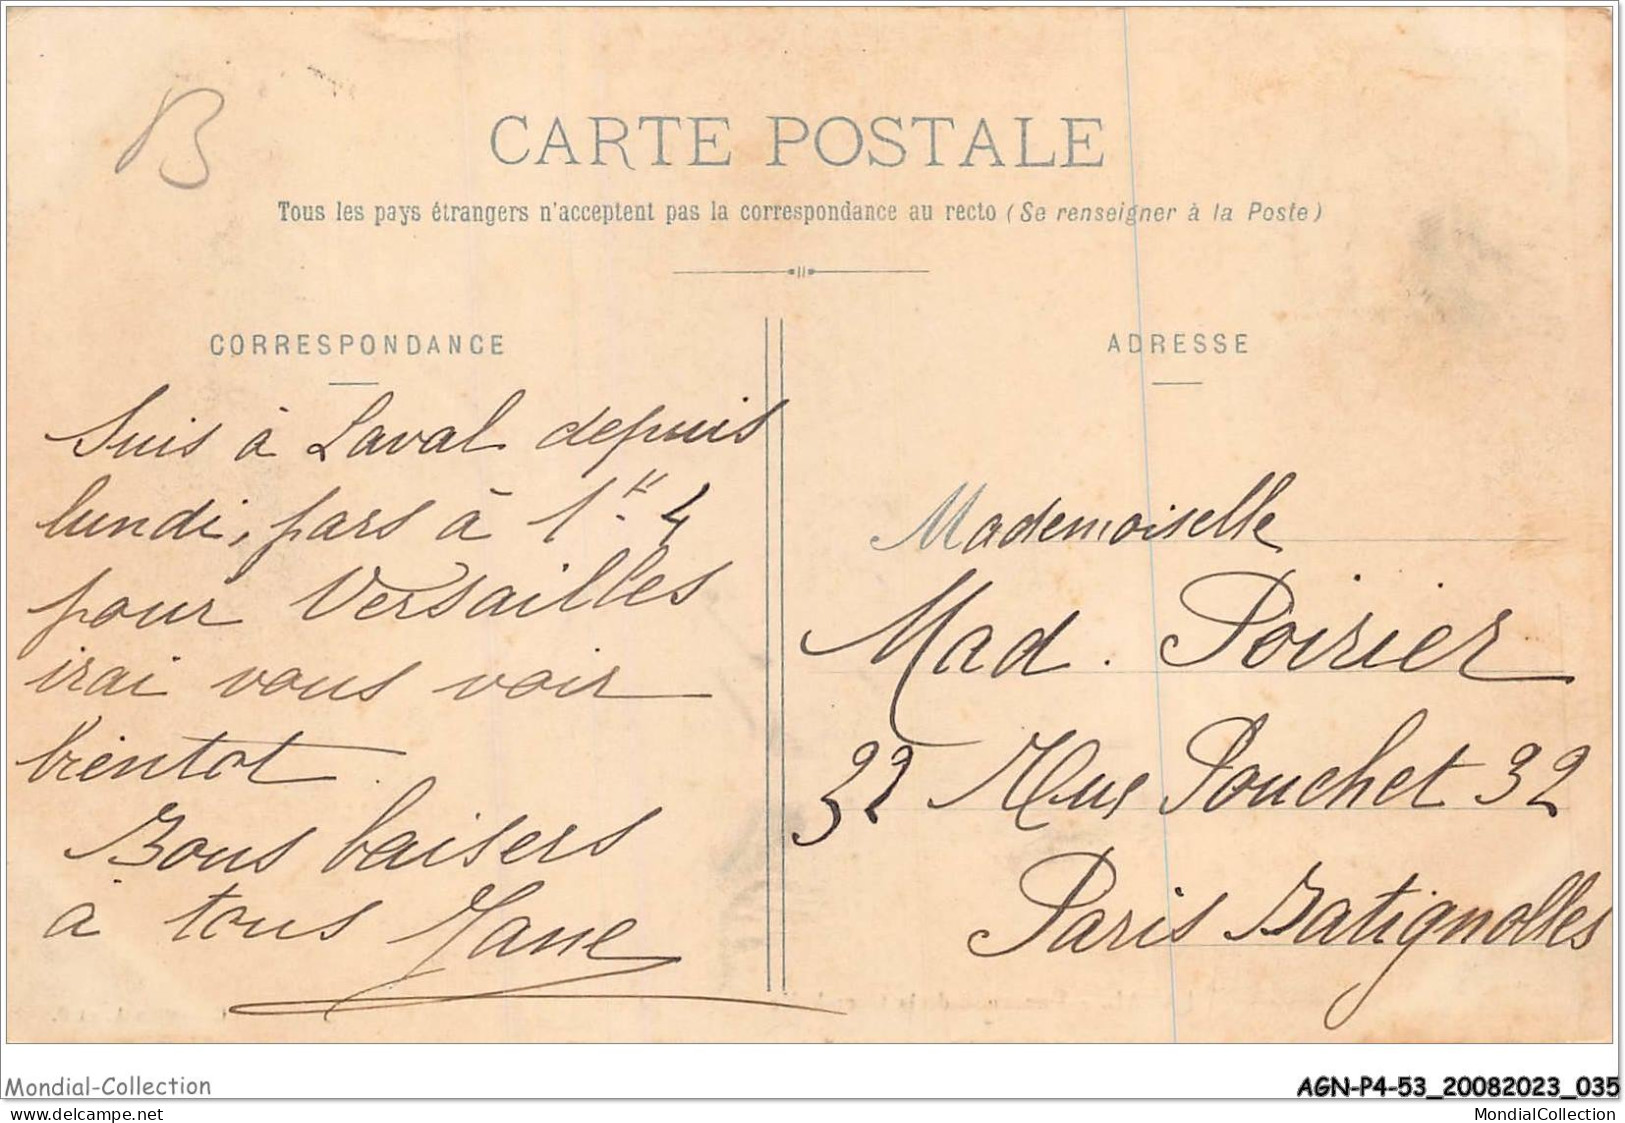 B
CARTE POSTALE
Tous les pays étrangers n'acceptent pas la correspondance au recto (Se renseigner à la Poste)
CORRESPONDANCE
Suis à Laval depuis
lundi, pars à 1 h 4
pour Versailles
irai vous voir
bientot
Bons baisers
à tous Jane
ADRESSE
Mademoiselle
Mad. Poirier
32 Rue Pouchet 32
Paris Batignolles
Mondial-Collection
AGN-P4-53_20082023_035
delcampe.net
MondialCollection